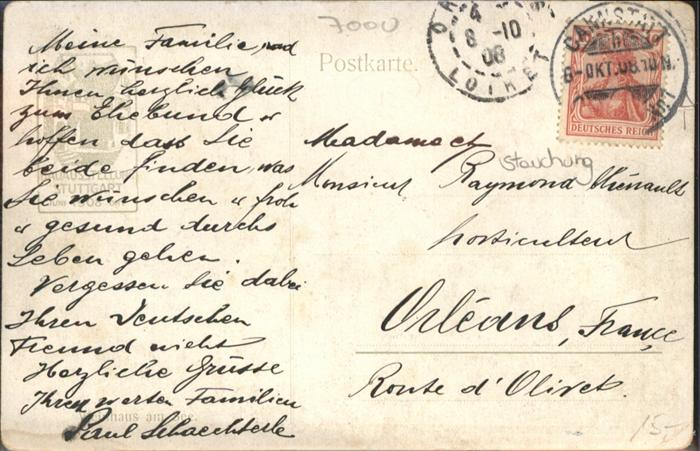 7000
Postkarte.
Meine Familie und
ich wünschen
Ihnen herzlich Glück
zum Ehebund u
hoffen dass Sie
beide finden, was
Sie wünschen u froh
u gesund durchs
Leben gehen.
Vergessen Sie dabei
Ihren Deutschen
Freund nicht
Herzliche Grüsse
Ihren werten Familien
Paul Schaechterle
STUTTGART
haus am See.
4
8 -10
08
LOIRET
CANNSTATT
6-OKT.08.10-
DEUTSCHES REICH
Stauchung
Madame et
Monsieur Raymond
horticulteur
Orléans, France
Route d'Olivet.
15-